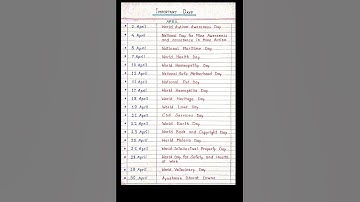 IMPORTANT DAYS
APRIL
2 April World Autism Awareness Day
4 April National Day for Mine Awareness
and assistance in Mine Action
5 April National Maritime Day
7 April World Health Day
10 April World Homeopathy Day
11 April National Safe Motherhood Day
11 April National Pet Day
17 April World Hemophilia Day
18 April World Heritage Day
19 April World Liver Day
21 April Civil Services Day
22 April World Earth Day
23 April World Book and Copyright Day
25 April World Malaria Day
26 April World Intellectual Property Day
28 April World Day for Safety and Health
at Work
29 April World Veterinary Day
30 April Ayushman Bharat Diwas